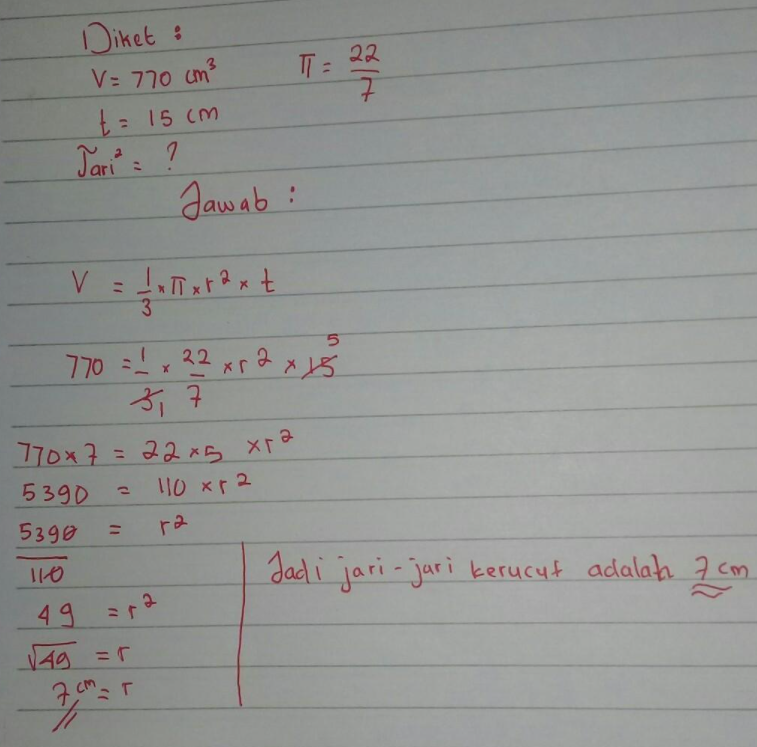 Diket :
V = 770 cm³ π = 22/7
t = 15 cm
Jari² = ?
Jawab :
V = 1/3 × π × r² × t
770 = 1/3 1 × 22/7 × r² × 15 5
770 × 7 = 22 × 5 × r²
5390 = 110 × r²
5390/110 = r²
49 = r²
√49 = r
7 cm = r
Jadi jari-jari kerucut adalah 7 cm